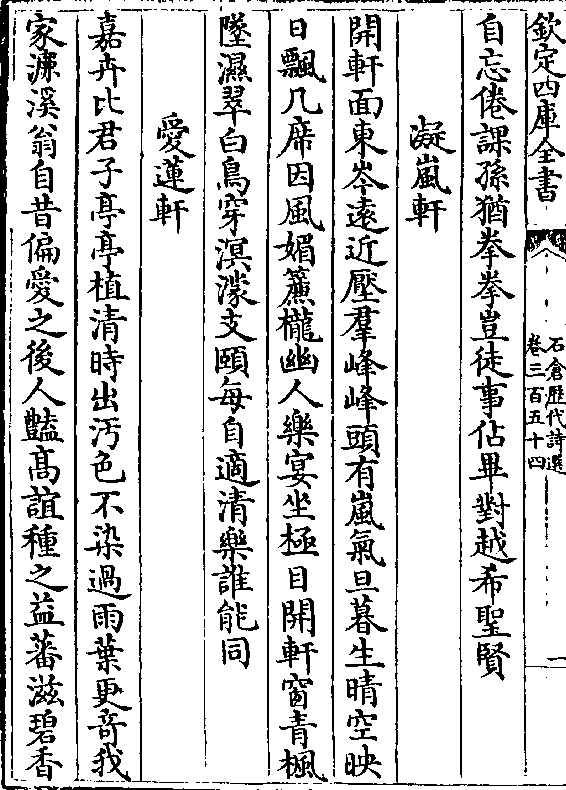 欽定四庫全書
石倉歷代詩選
卷三百五十四
一
自忘倦課孫猶拳拳豈徒事佔畢對越希聖賢
凝嵐軒
開軒面東岑遠近壓羣峰峰頭有嵐氣旦暮生晴空映
日飄几席因風媚簾櫳幽人樂宴坐極目開軒窗青楓
墜濕翠白鳥穿溟濛支頤每自適清樂誰能同
愛蓮軒
嘉卉比君子亭亭植清時出汚色不染過雨葉更竒我
家濂溪翁自昔偏愛之後人豔高誼種之益蕃滋碧香